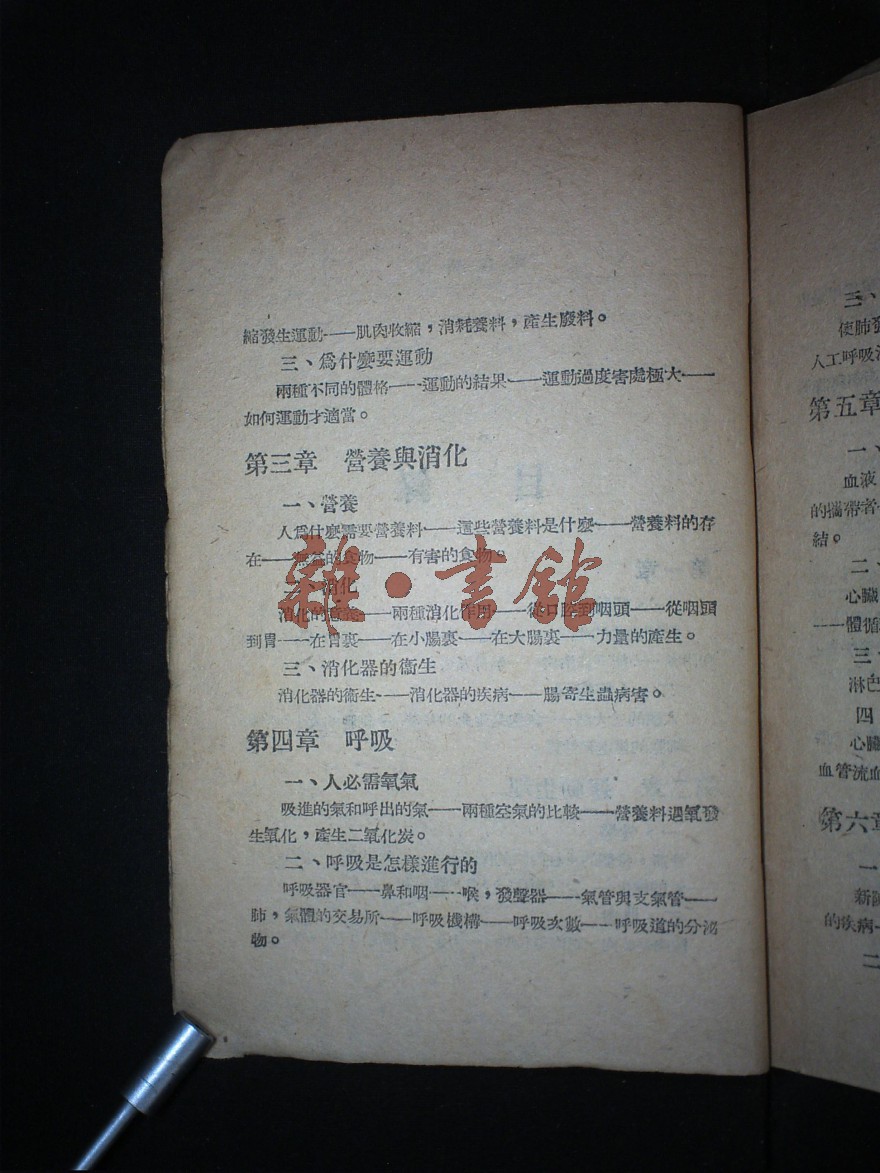 縮發生運動——肌肉收縮，消耗養料，產生廢料。
三、爲什麼要運動
兩種不同的體格——運動的結果——運動過度害處極大——
如何運動才適當。
第三章 營養與消化
一、營養
人爲什麼需要營養料——這些營養料是什麼——營養料的存
在——的食物——有害的食物。
二、消化
消化的意義——兩種消化作用——從口腔到咽頭——從咽頭
到胃——在胃裏——在小腸裏——在大腸裏——力量的產生。
三、消化器的衞生
消化器的衞生——消化器的疾病——腸寄生蟲病害。
第四章 呼吸
一、人必需氧氣
吸進的氣和呼出的氣——兩種空氣的比較——營養料遇氧發
生氧化，產生二氧化炭。
二、呼吸是怎樣進行的
呼吸器官——鼻和咽——喉，發聲器——氣管與支氣管——
肺，氣體的交易所——呼吸機構——呼吸次數——呼吸道的分泌
物。
雜·書舘
三、
使肺發
人工呼吸
第五章
一、
血液
的攜帶者
結。
二、
心臟
——體循
三、
淋巴
四
心臟
血管流血
第六章
一
新陳
的疾病
二